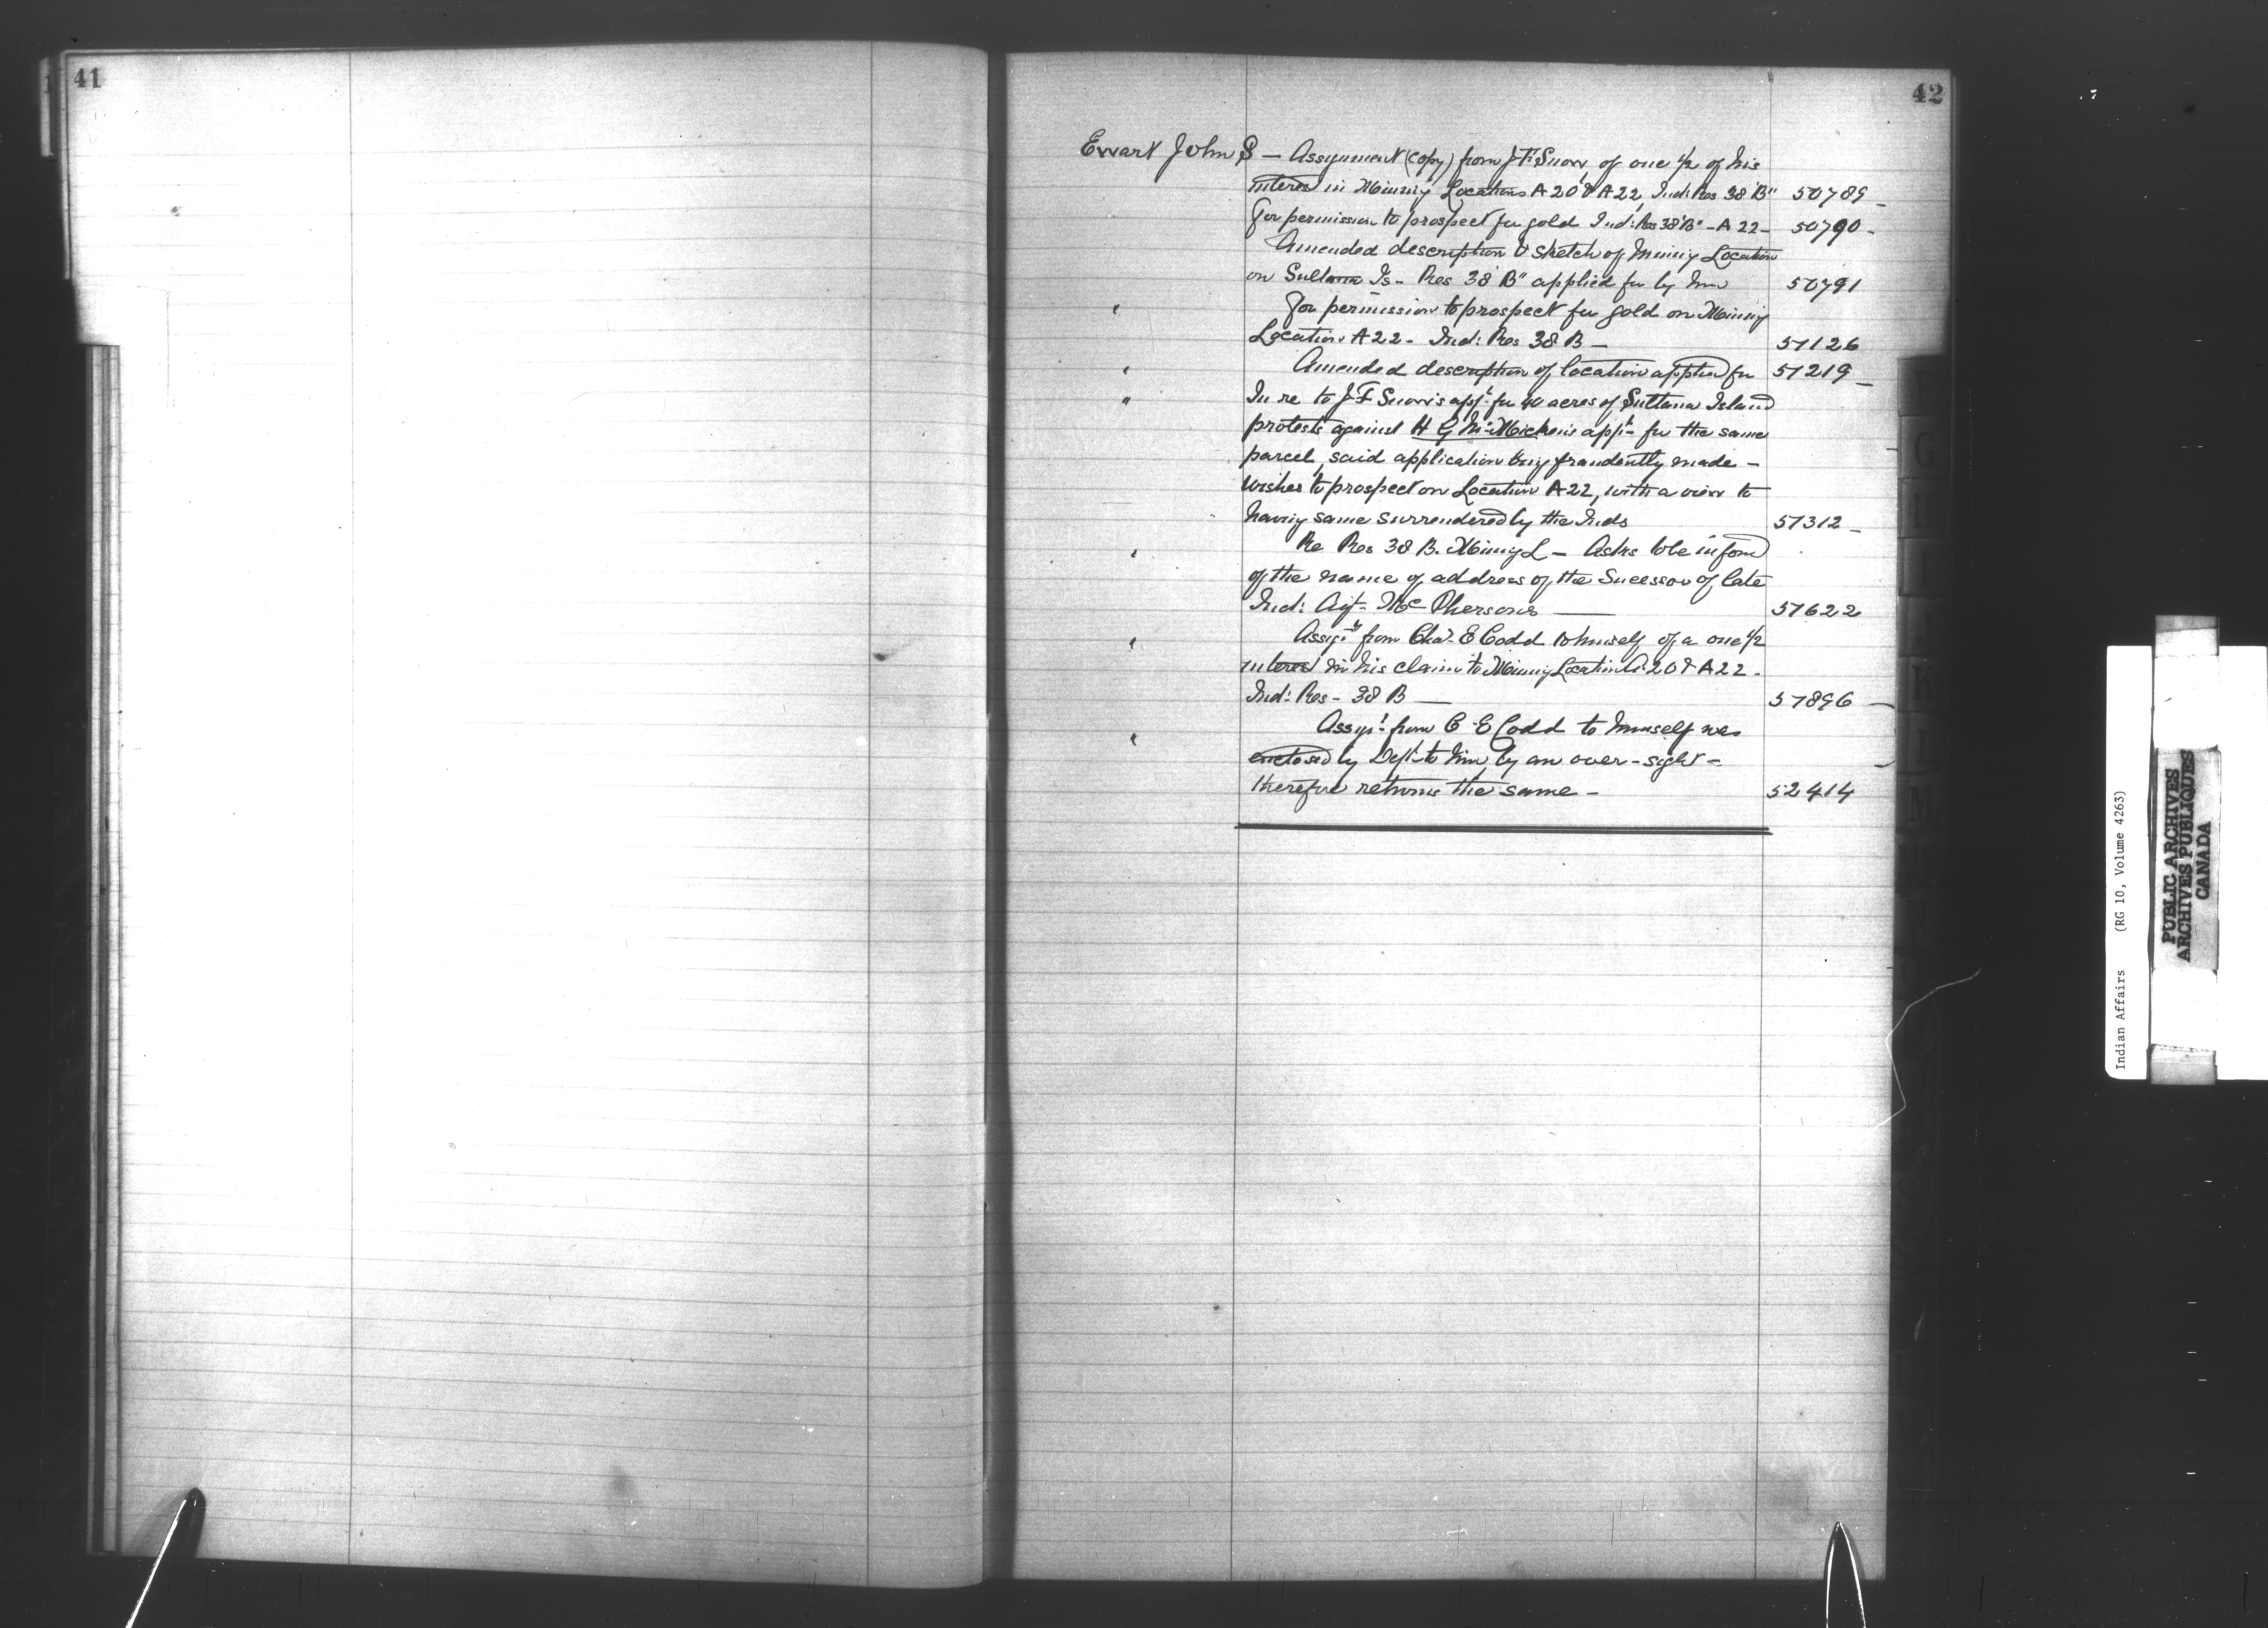 41
42
Ewart John S — Assignment (copy) from J. F. Snow, of one 1/2 of his
interest in Mining Locations A 20 & A 22, Ind: Res 38 "B" 50789 -
For permission to prospect for gold Ind: Res 38 "B" - A 22 - 50790 -
Amended description & sketch of Mining Location
on Sultana Is - Res 38 "B" applied for by him 50791
" For permission to prospect for gold on Mining
Location A 22 - Ind: Res 38 B — 51126
" Amended description of location applied for 51219 -
" In re to J F Snow's appt. for 40 acres of Sultana Island
protests against H G McMicken's appt. for the same
parcel, said application being fraudently made -
Wishes to prospect on Location A 22, with a view to
having same surrendered by the Inds 51312 -
" Re Res 38 B. Mining L — Asks to be inform
of the name & address of the Sucessor of late
Ind: Agt. McPhersons — 51622
" Assigt. from Chas. E Codd to himself of a one 1/2
interest in his claim to Mining Location A 20 & A 22 -
Ind: Res - 38 B — 51896 -
" Assigt. from C. E Codd to himself was
enclosed by Dept. to him, by an over-sight -
therefore returns the same - 52414
G
H
I
K
L
M
Indian Affairs (RG 10, Volume 4263)
PUBLIC ARCHIVES
ARCHIVES PUBLIQUES
CANADA